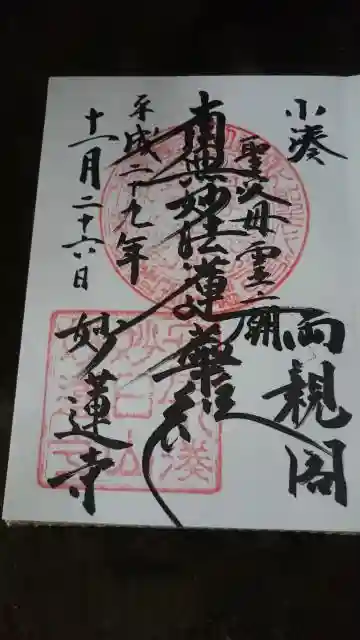 小湊
両親閣
聖父母霊廟
南無妙法蓮華経
平成二十九年
十一月二十六日
妙蓮寺